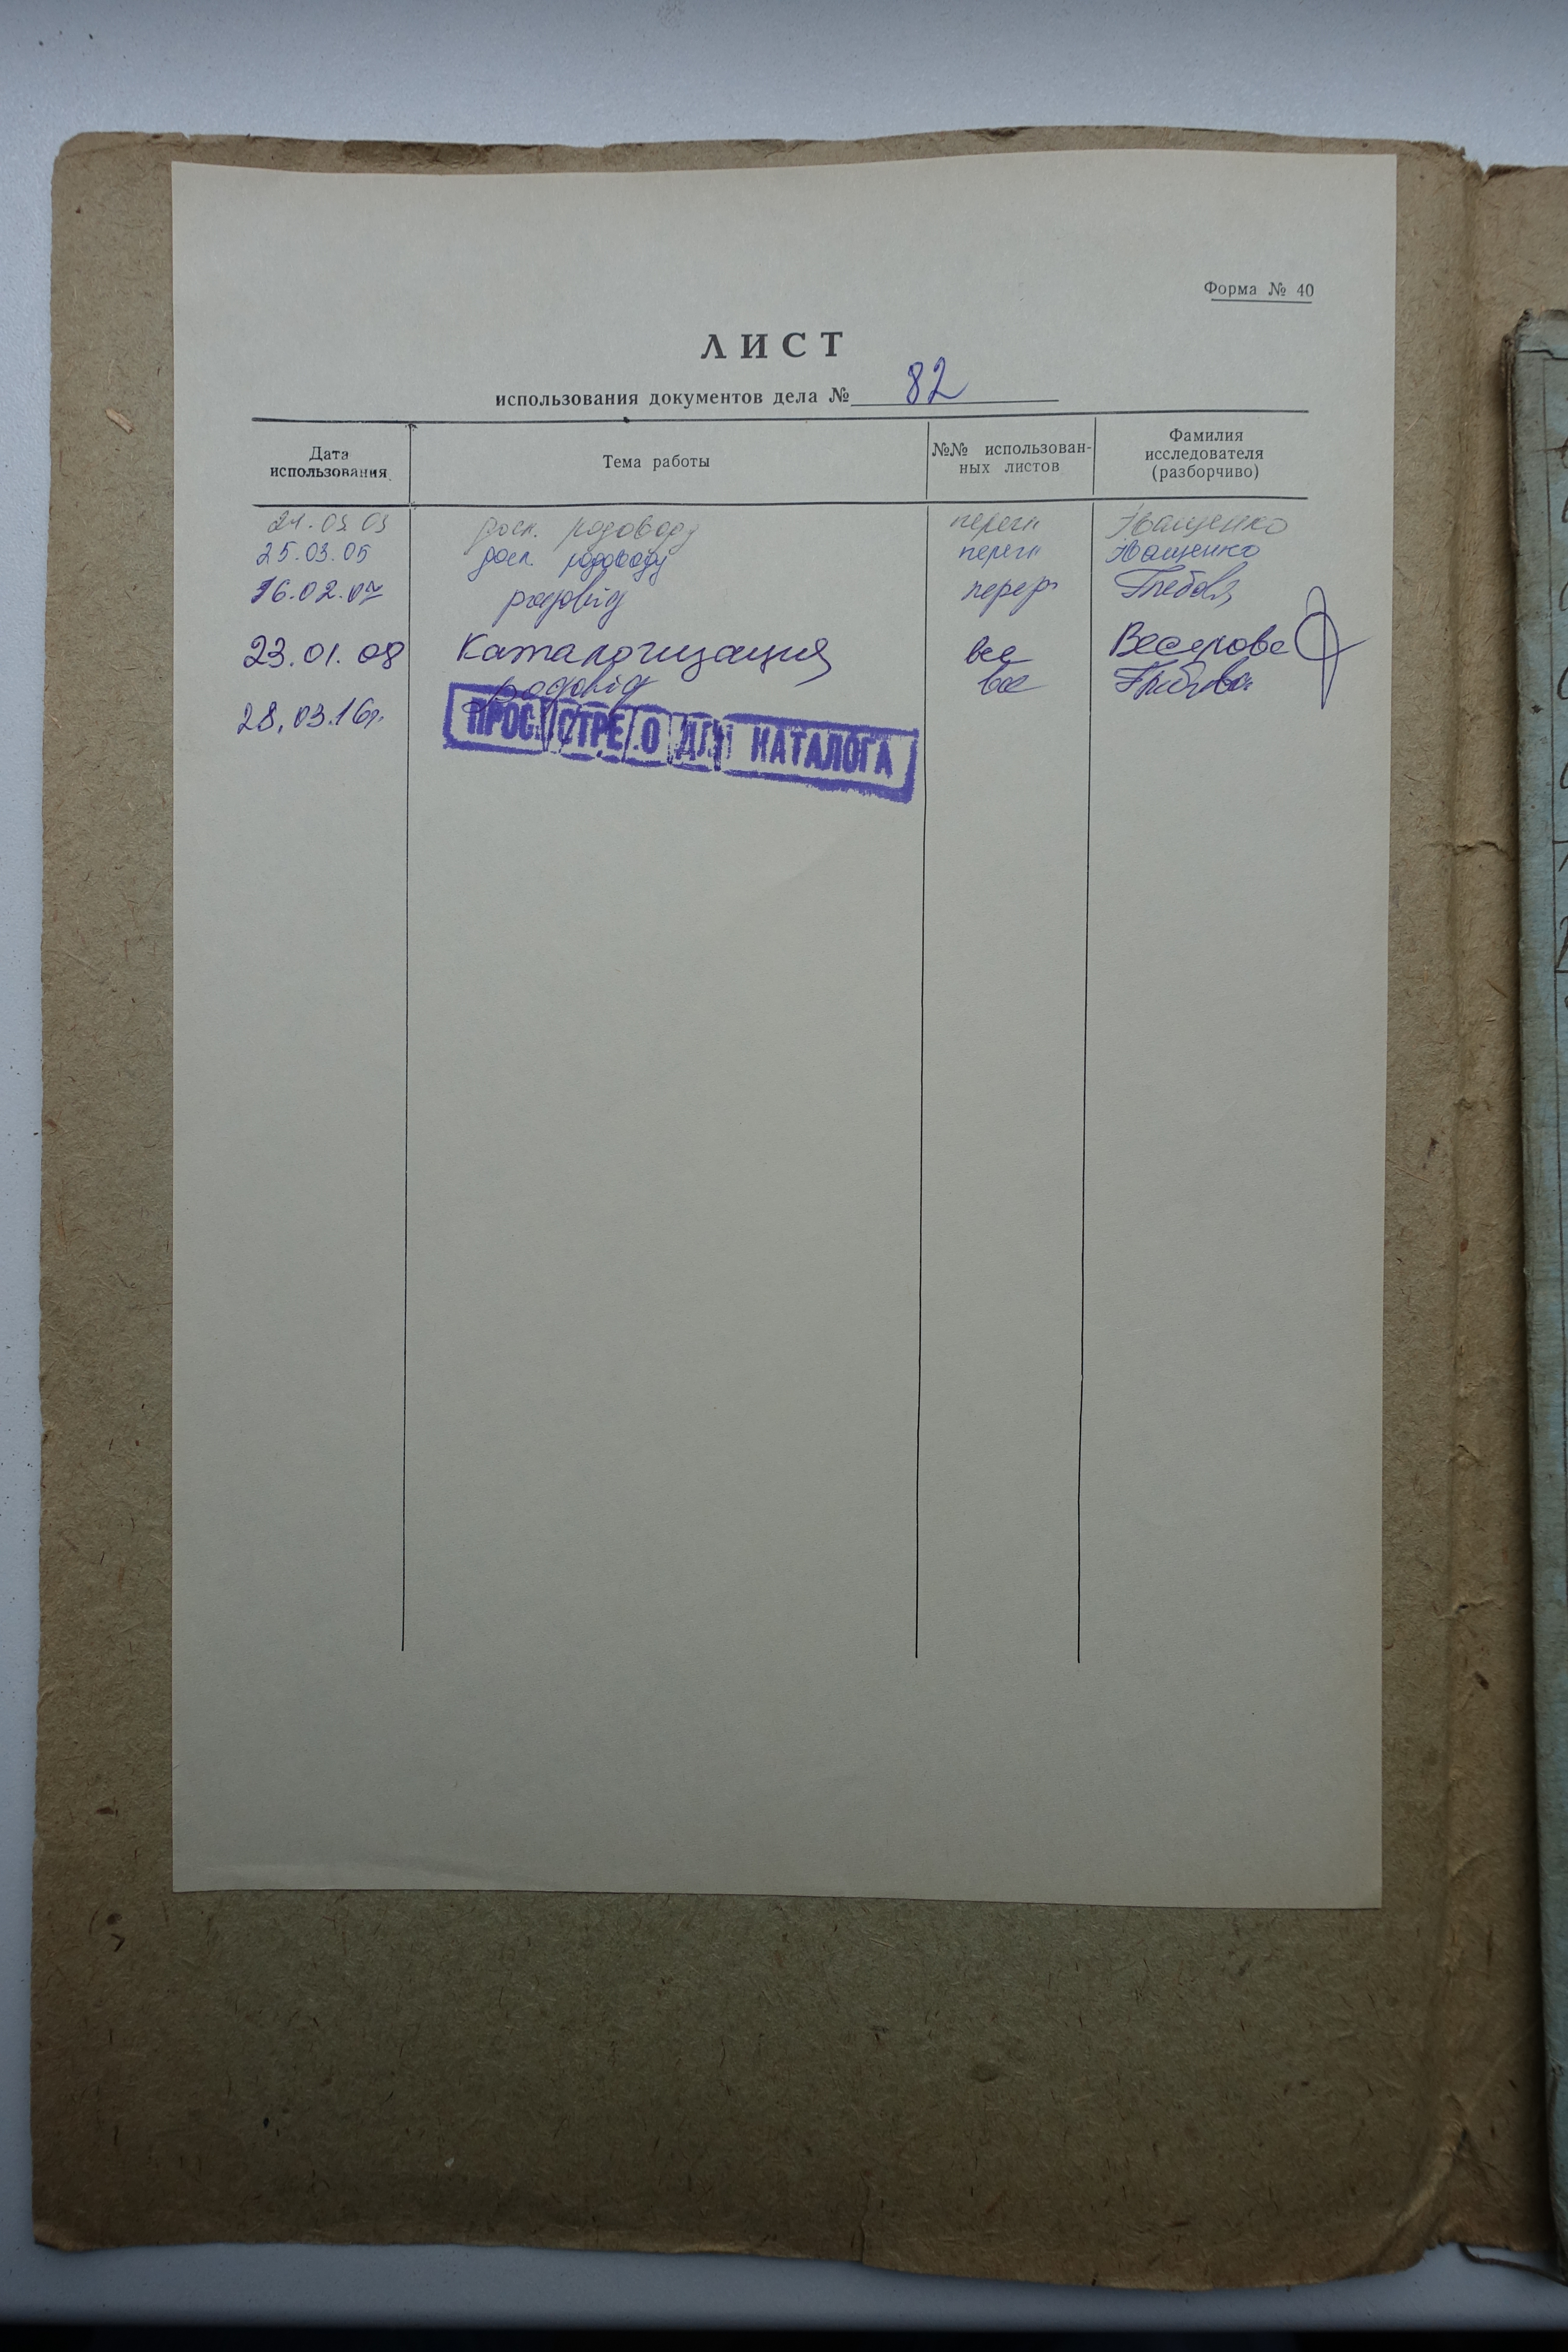 Форма № 40
ЛИСТ
использования документов дела № 82
Дата использования
Тема работы
№№ использован-
ных листов
Фамилия
исследователя
(разборчиво)
досл. родоводу перегл Іващенко
25.03.05 досл. родоводу перегл Іващенко
16.02.07 родовід перегл
23.01.08 Каталогизация все
родовід все
28.03.16р.
ПРОСМОТРЕНО ДЛЯ КАТАЛОГА